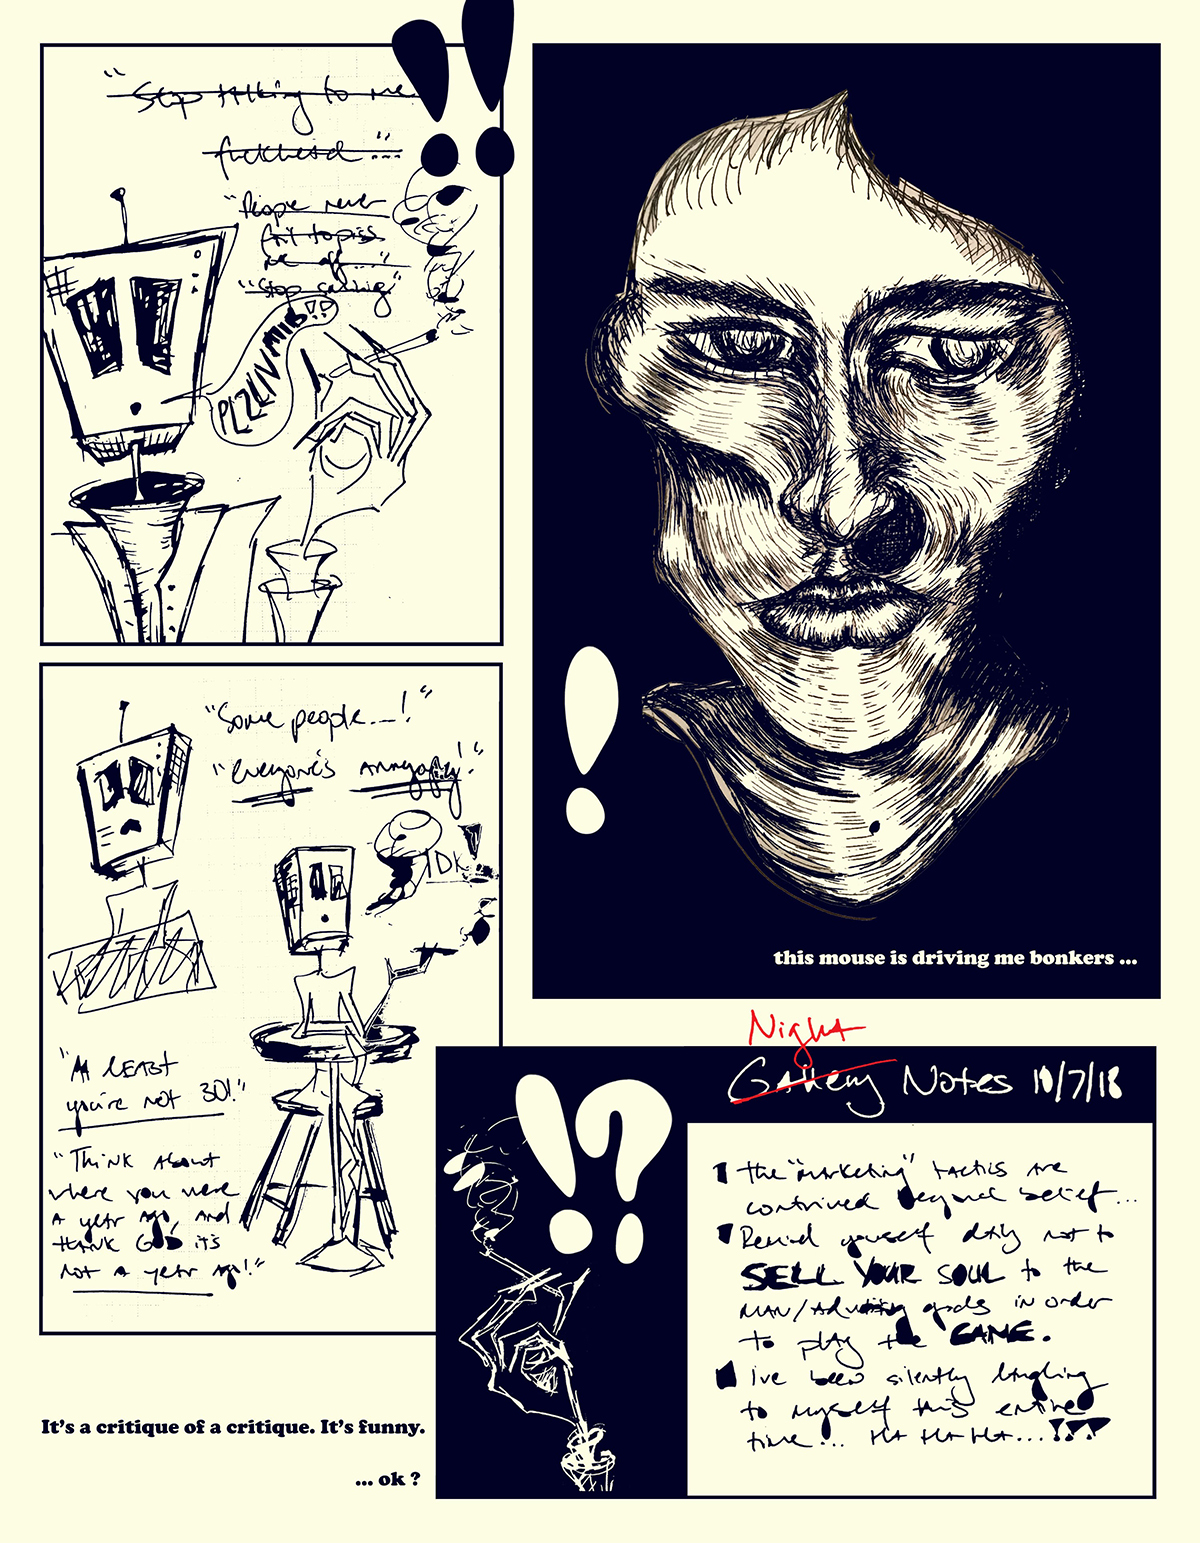 "Stop talking to me
fuckhead ..."
"People never
fail to piss
me off ..."
"Stop calling"
PLZLIVMIB??
"Some people...!"
"everyone's annoying!"
IDK!
"At least
you're not 30!"
"Think about
where you were
a year ago, and
thank God it's
not a year ago!"
this mouse is driving me bonkers ...
Night
Gallery Notes 10/7/18
The "marketing" tactics are
contrived beyond belief...
Remind yourself daily not to
SELL YOUR SOUL to the
MAN/Advertising gods in order
to play the GAME.
I've been silently laughing
to myself this entire
time!... HA HA HA...!!!
It's a critique of a critique. It's funny.
... ok ?
!?
!!
!